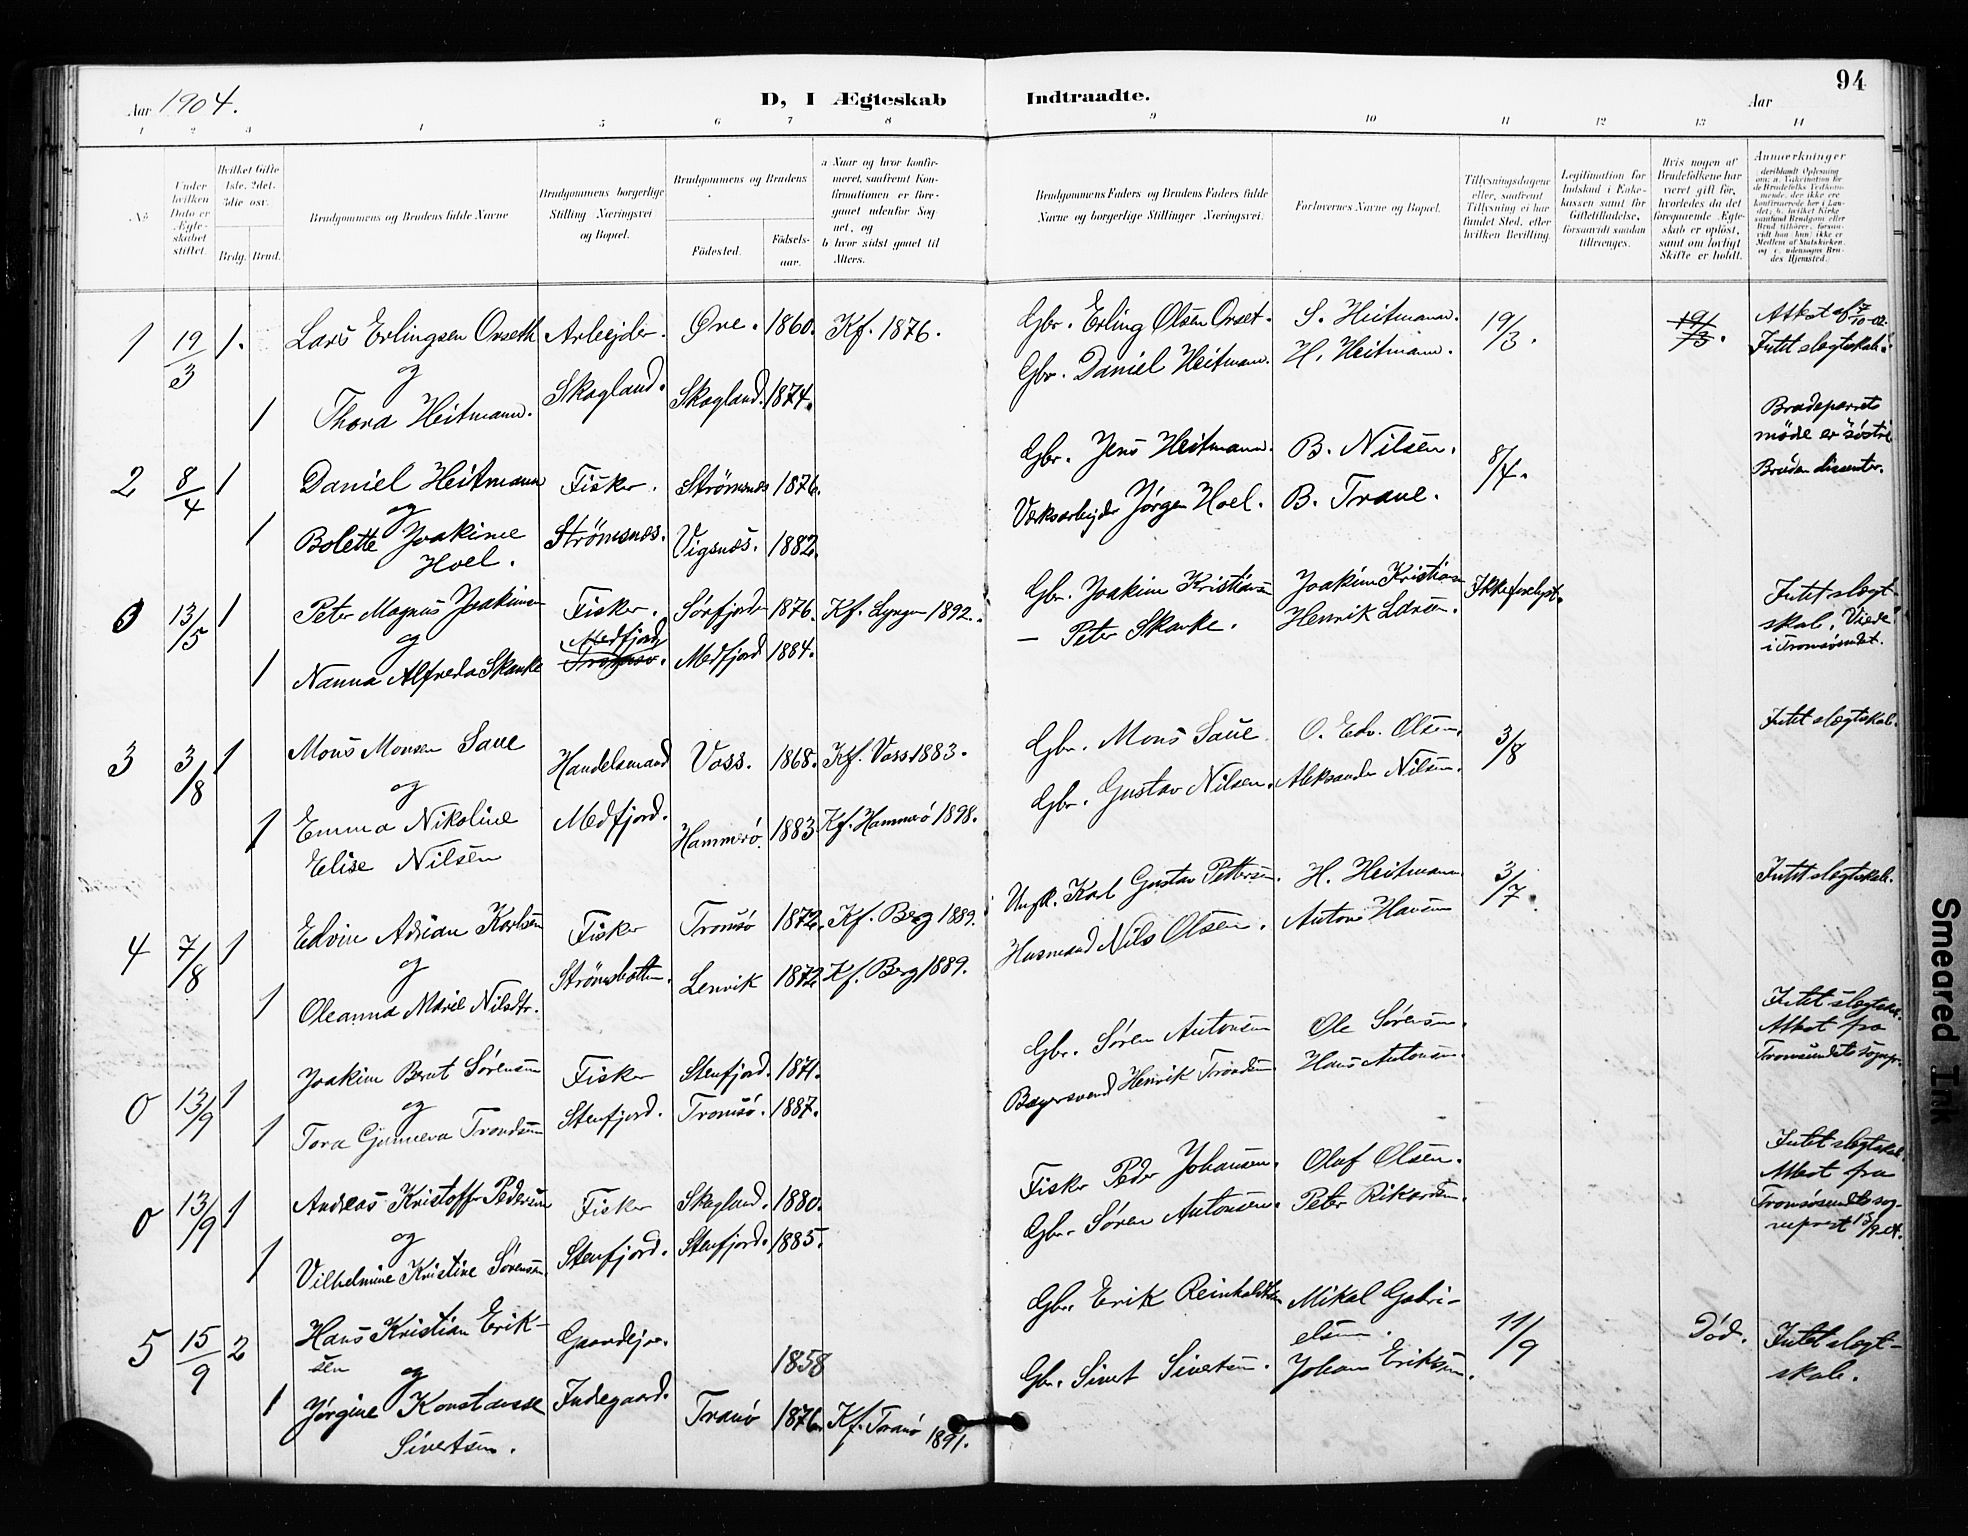 94
Aar 1904.
D, I Ægteskab Indtraadte.
Aar
1 2 3 4 5 6 7 8 9 10 11 12 13 14
№
Under hvilken Dato er Ægteskabet stiftet.
Hvilket Gifte 1ste. 2det. 3die osv.
Brdg. Brud.
Brudgommens og Brudens fulde Navne
Brudgommens borgerlige Stilling Næringsvei og Bopæl.
Brudgommens og Brudens
Fødested.
Fødselsaar.
a Naar og hvor konfirmeret, saafremt Konfirmationen er foregaaet udenfor Sognet, og
b hvor sidst gaaet til Alters.
Brudgommens Faders og Brudens Faders fulde Navne og borgerlige Stillinger Næringsvei.
Forlovernes Navne og Bopæl.
Tillysningsdagene eller, saafremt Tillysning ei har fundet Sted, efter hvilken Bevilling.
Legitimation for Indskud i Enkekassen samt for Giftetilladelse, forsaavidt saadan tiltrænges.
Hvis nogen af Brudefolkene har været gift før, hvorledes da det foregaaende Ægteskab er opløst, samt om lovligt Skifte er holdt.
Anmerkninger
1 19/3 1. Lars Erlingsen Orseth Arbejder. Øre. 1860. Kf. 1876. Gbr. Erling Olsen Orset. S. Heitmann. 19/3. 19/3. Attest af 7/10-02. Intet slegtskab.
og
1 Thora Heitmann. Skogland. Skogland. 1874. Gbr. Daniel Heitmann. H. Heitmann.
2 8/4 1 Daniel Heitmann Fisker. Strömsnes 1876. Gbr. Jens Heitmann. B. Nilsen. 8/4. Brudeparrets möde er söstre
og
1 Bolette Joakime Hoel. Strömsnes. Vigsnæs. 1882. Verksarbejder Jørgen Hoel. B. Trane. Bruden dissenter.
0 13/5 1 Peter Magnus Joakimsen Fisker. Sörfjorden 1876. Kf. Lyngen 1892. Gbr. Joakim Kristiansen Joakim Kristiansen Ikke forelyst. Intet slegtskab. Viede i Tromsösundet.
og
1 Nanna Alfreda Skanke Medfjord Tromsö. Medfjord 1884. — Peter Skanke. Henrik Larsen.
3 3/8 1 Mons Monsen Saue Handelsmand Voss. 1868. Kf. Voss 1883. Gbr. Mons Saue O. Edv. Olsen. 3/8 Intet slegtskab.
og
1 Emma Nikoline Elise Nilsen Medfjord. Hammerö. 1883 Kf. Hammerö 1898. Gbr. Gustav Nilsen. Aleksander Nilsen.
4 7/8 1 Edvin Adrian Karlsen Fisker Tromsö 1872. Kf. Berg 1889. Ungk. Karl Gustav Pettersen. H. Heitmann 3/7. Intet slegtskab.
og
1 Oleanna Marie Nilsdtr. Strömsbotten. Lenvik 1872 Kf. Berg 1889. Husmand Nils Olsen. Anton Hansen
0 13/9 1 Joakim Bernt Sørensen Fisker Stenfjord. 1871. Gbr. Søren Antonsen Ole Sørensen. Intet slegtskab. Attest fra Tromsundets sognepr.
og
1 Tora Gjunneva Trondsen Stenfjord. Tromsö. 1887. Bøyersvend Henrik Trondsen Hans Antonsen.
0 13/9 1 Andreas Kristoffer Pedersen Fisker Skogland. 1880. Fisker Peder Johansen. Oluf Olsen. Intet slegtskab. Attest fra Tromsösundets sogneprest 13/9-04.
og
1 Vilhelmine Kristine Sørensen. Stenfjord. Stenfjord. 1885. Gbr. Søren Antonsen. Peter Rikardsen.
5 15/9 2 Hans Kristian Eriksen Gaardejer. 1858 Gbr. Erik Reinholdtsen Mikal Gabrielsen. 11/9 Död. Intet slegtskab.
og
1 Jørgine Konstanse Sivertsen. Indregaard. Tranö 1876. Kf. Tranö 1891. Gbr. Sivert Sivertsen. Johan Eriksen.
Smeared Ink